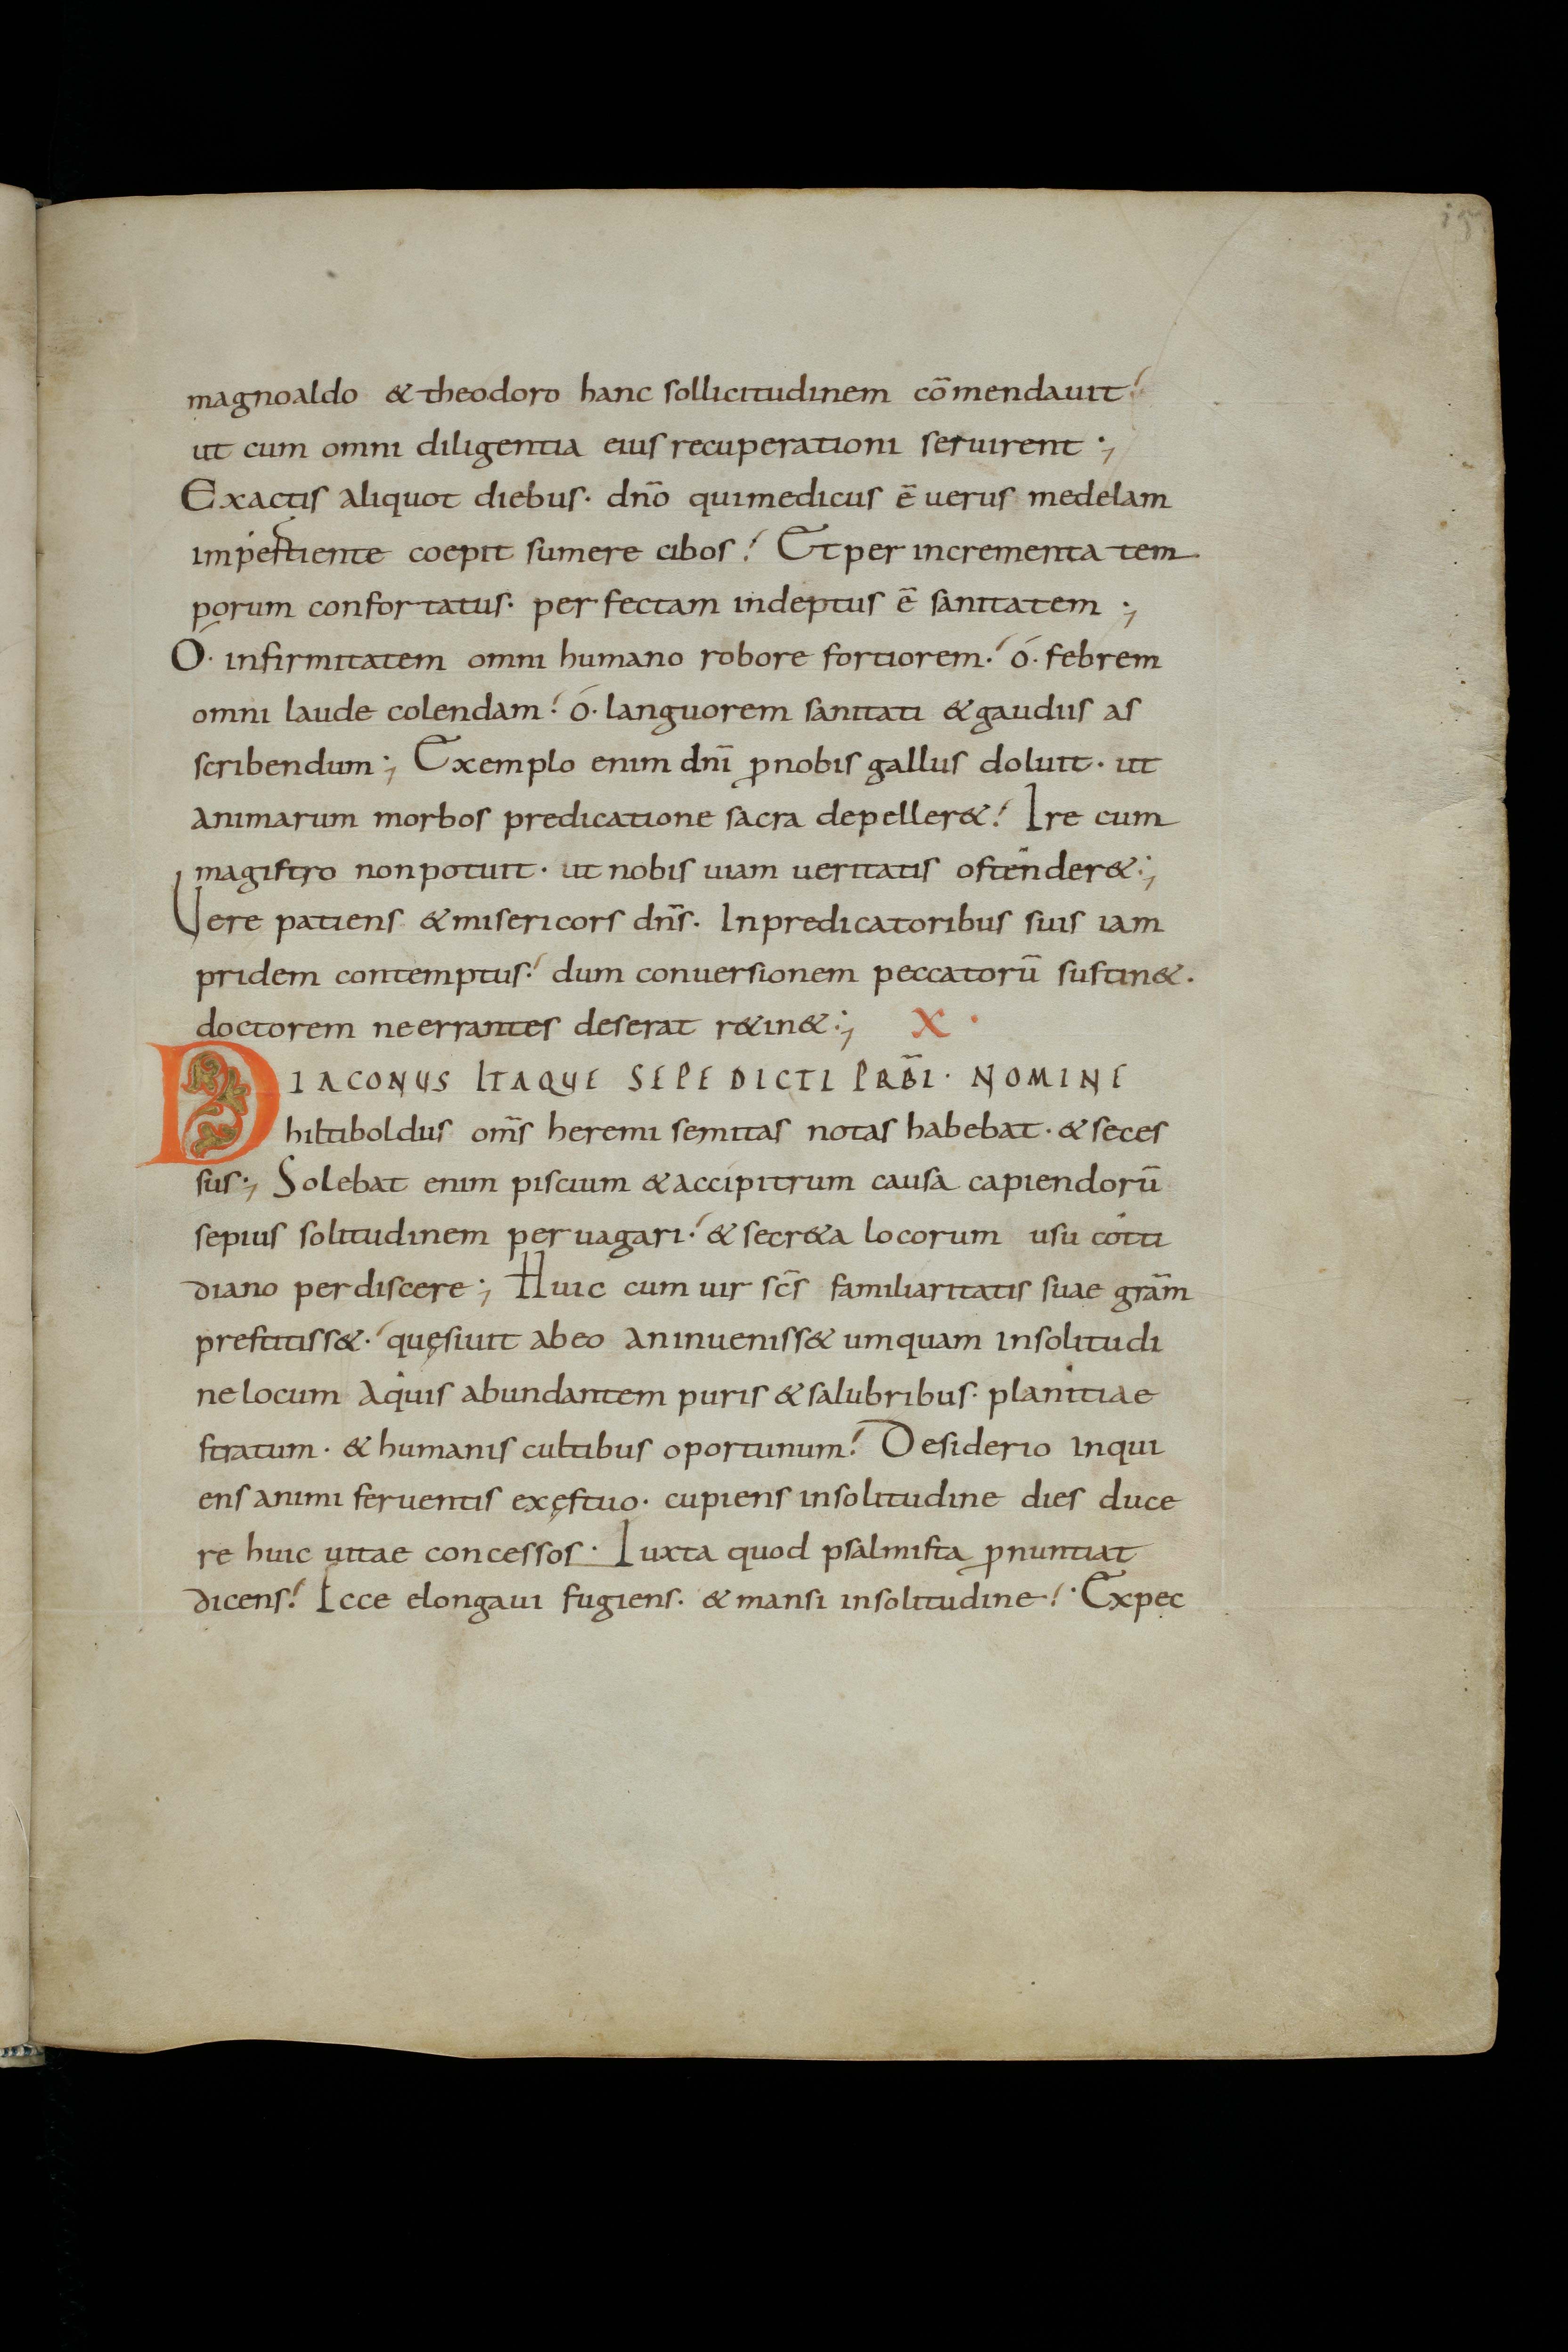 magnoaldo & theodoro hanc sollicitudinem cōmendauit.
ut cum omni diligentia eius recuperationi seruirent ;
Exactis aliquot diebus· dn̄o qui medicus ē uerus medelam
impertiente coepit sumere cibos. Et per incrementa tem
porum confortatus· perfectam indeptus ē sanitatem ;
Ó· infirmitatem omni humano robore fortiorem. ó· febrem
omni laude colendam. ó· languorem sanitati & gaudiis as
scribendum; Exemplo enim dn̄i ꝓ nobis gallus doluit· ut
animarum morbos predicatione sacra depeller&. Ire cum
magistro non potuit· ut nobis uiam ueritatis ostender&;
Uere patiens & misericors dn̄s· In predicatoribus suis iam
pridem contemptus. dum conuersionem peccatorū sustin&·
doctorem ne errantes deserat r&in&; X·
DIACONUS ITAQUE SEPEDICTI PRB̄I· NOMINE
hiltiboldus om̄s heremi semitas notas habebat· & seces
sus; Solebat enim piscium & accipitrum causa capiendorū
sepius solitudinem peruagari. & secr&a locorum usu cotti
diano perdiscere; Huic cum uir sc̄s familiaritatis suae grām
prestitiss&. quęsiuit ab eo an inueniss& umquam in solitudi
ne locum aquis abundantem puris & salubribus· planitiae
stratum· & humanis cultibus oportunum. Desiderio inqui
ens animi feruentis exęstuo· cupiens in solitudine dies duce
re huic uitae concessos· Iuxta quod psalmista ꝓnuntiat
dicens. Ecce elongaui fugiens· & mansi in solitudine. Expec